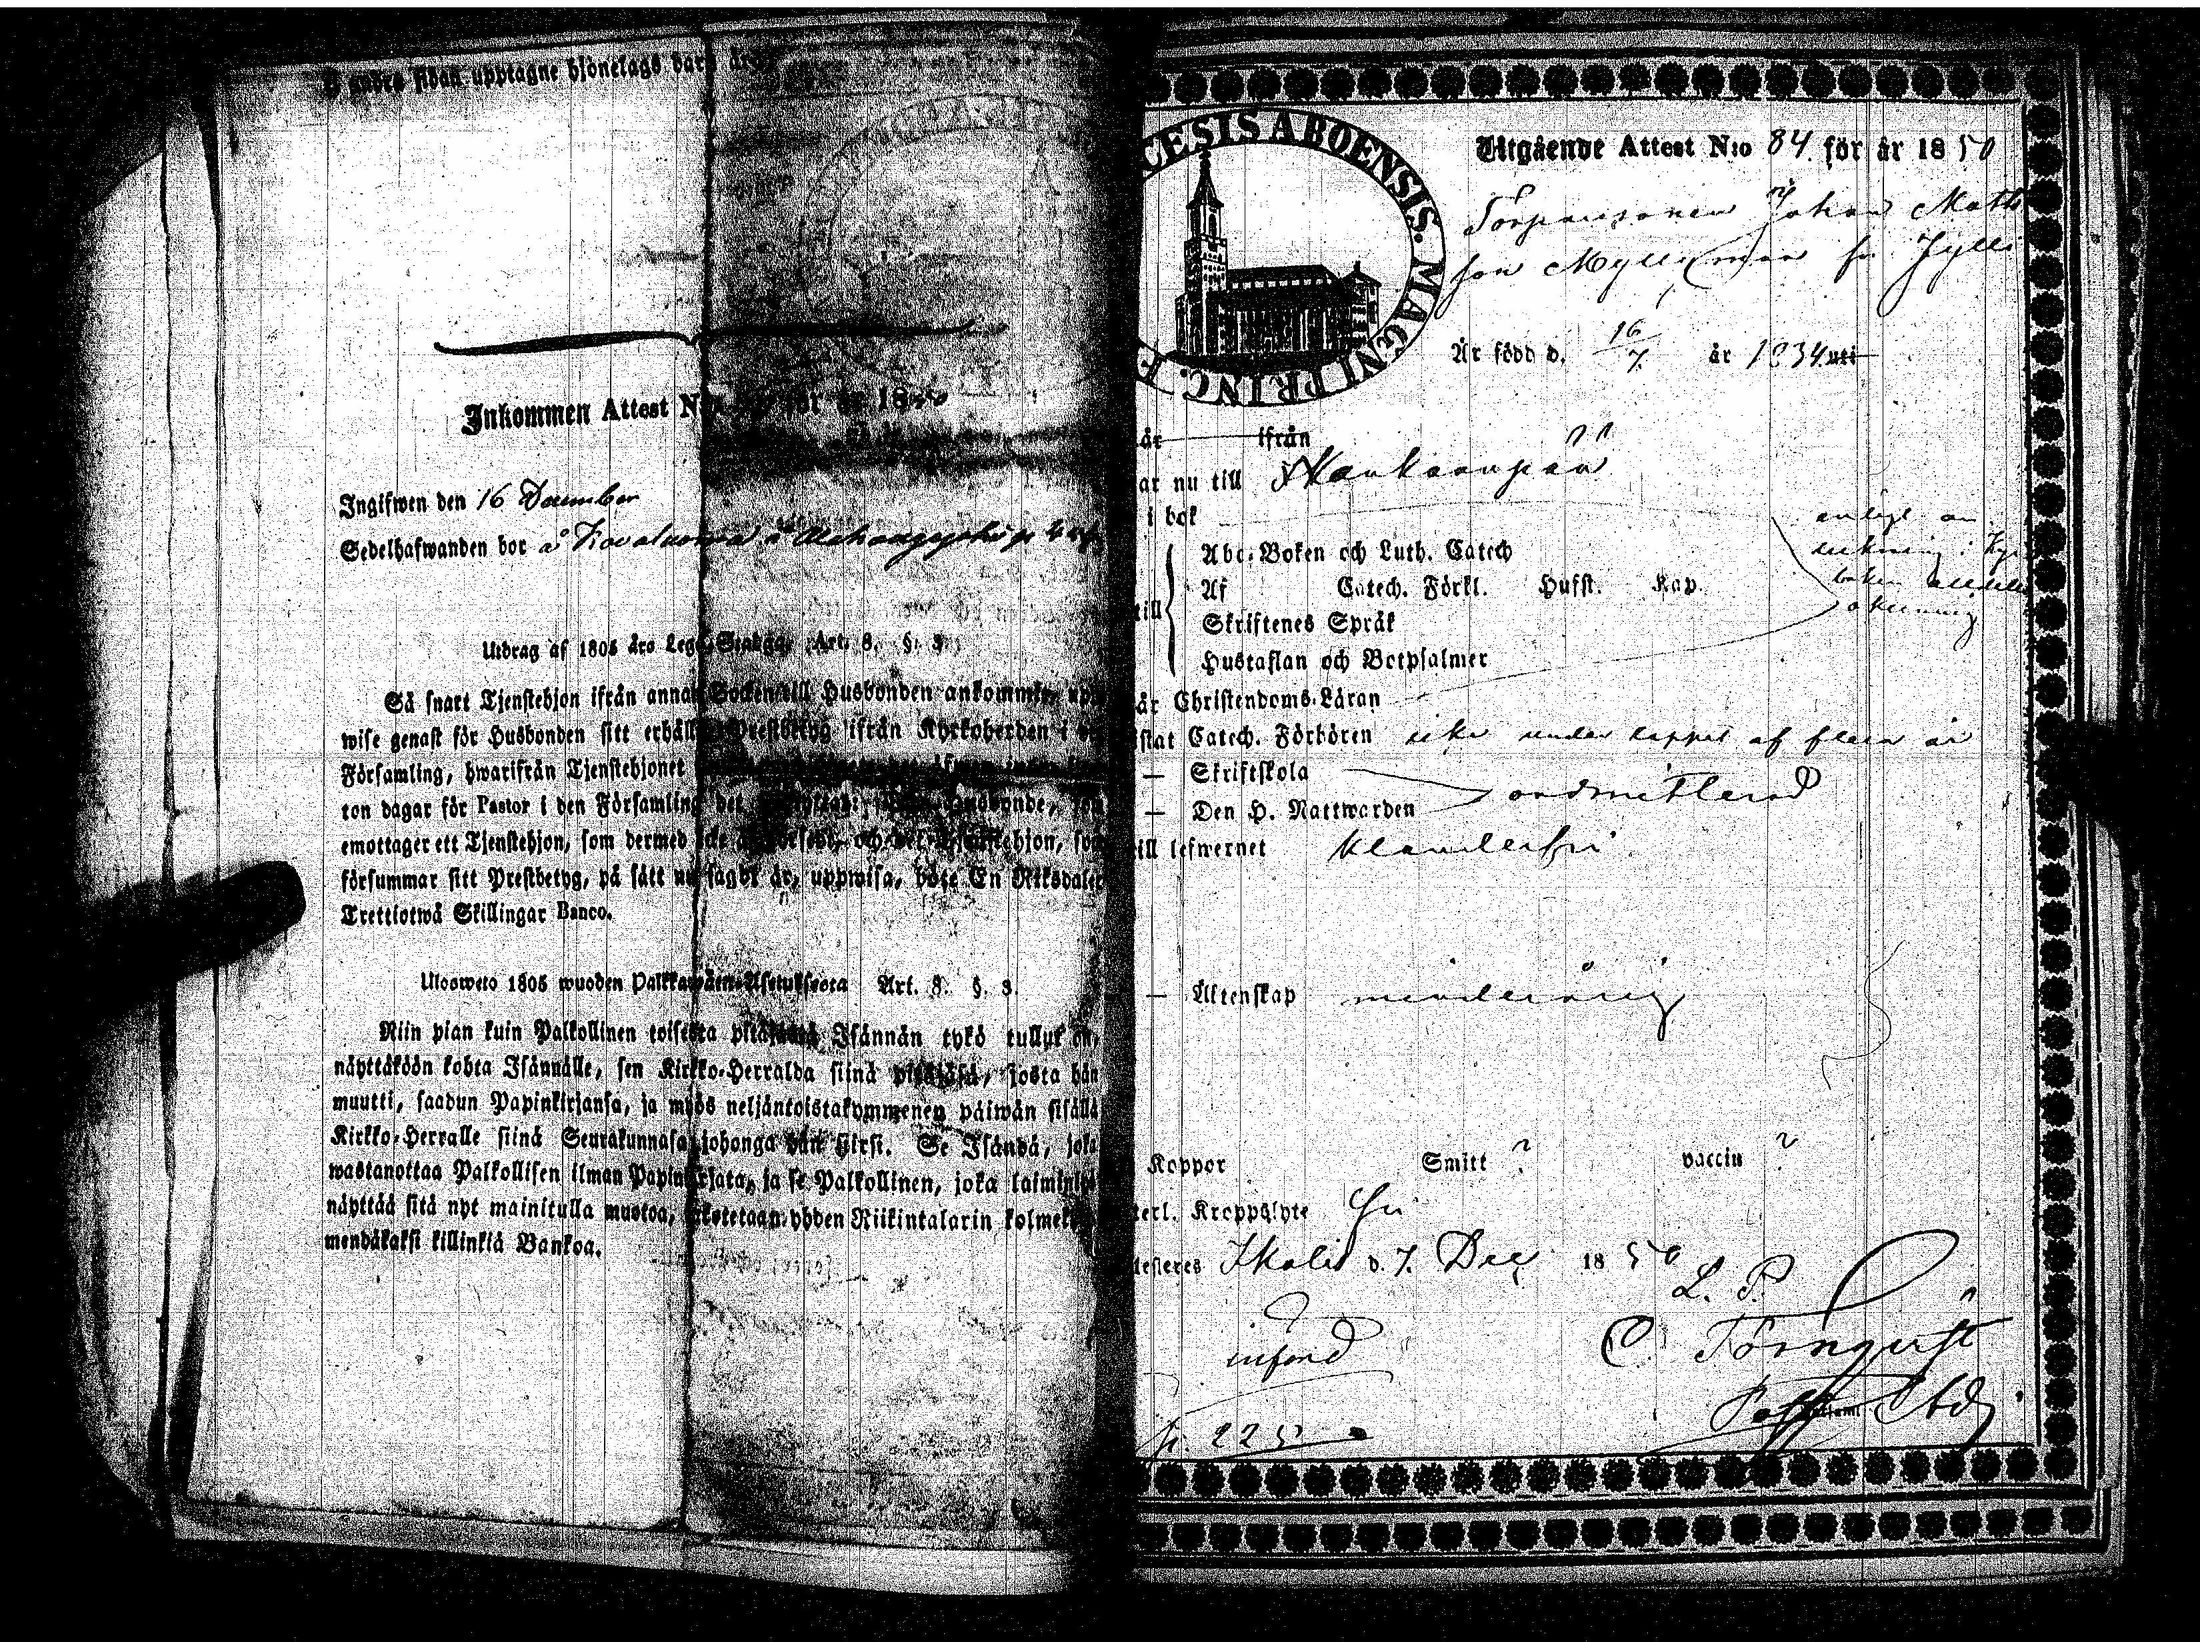 andra sidan upptagne hjonelags barn är
Inkommen Attest N för år 1850
Ingifwen den 16 December
Sedelhafwanden bor å
Utdrag af 1805 års Lego Stadga, Art. 8. §. 3.
Så snart Tjenstehjon ifrån annan Socken till Husbonden ankommit, upp
wise genast för Husbonden sitt erhållna Prestbetyg ifrån Kyrkoherden i
Församling, hwarifrån Tjenstehjonet
ton dagar för Pastor i den Församling det
emottager ett Tjenstehjon, som dermed icke är försedt, och det Tjenstehjon, som
försummar sitt Prestbetyg, på sätt nu sagdt är, uppwisa, böte En Riksdaler
Trettiotwå Skillingar Banco.
Ulosweto 1805 wuoden Palkkawäen-Asetuksesta Art. 8. §. 3.
Niin pian kuin Palkollinen toisesta pitäjästä Isännän tykö tullut on,
näyttäköön kohta Isännälle, sen Kirkko-Herralda siinä pitäjäsä, josta hän
muutti, saadun Papinkirjansa, ja myös neljäntoistakymmenen päiwän sisällä
Kirkko-Herralle siinä Seurakunnasa johonga hän siirsi. Se Isändä, joka
wastanottaa Palkollisen ilman Papinkirjata, ja se Palkollinen, joka laiminlyö
näyttää sitä nyt mainitulla muotoa, sakotetaan yhden Riikintalarin kolmekym
mendäkaksi killinkiä Bankoa.
CESIS ABOENSIS. MAGNI PRINC. F
Utgående Attest N:o 84 för år 1850
Torparesonen Johan Matts
son Myllymaa fr Jylli
Är född d. 16/7 år 1834 uti
är ifrån
ar nu till Kankaanpää
i bok
Abc-Boken och Luth. Catech
Af Catech. Förkl. Hufst. Kap.
till
Skriftenes Språk
Hustaflan och Botpsalmer
enligt an
teckning i
boken alldeles
okunnig
är Christendoms-Läran
istat Catech. Förhören icke under loppet af flera år
— Skriftskola
— Den H. Nattwarden oadmitterad
till lefwernet klanderfri
— Äktenskap minderårig
Koppor Smitt ? vaccin ?
terl. Kroppslyte fri
testeres Ikalis d. 7. Dec 1850
L. P.
C. Törnqvist
införd
p. 225